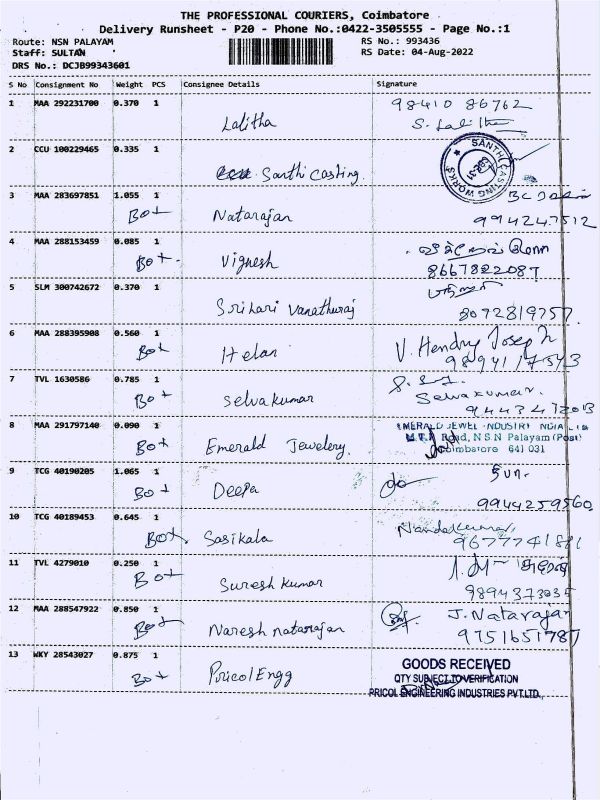 THE PROFESSIONAL COURIERS, Coimbatore
Delivery Runsheet - P20 - Phone No.:0422-3505555 - Page No.:1
Route: NSN PALAYAM
RS No.: 993436
Staff: SULTAN
RS Date: 04-Aug-2022
DRS No.: DCJB99343601
S No Consignment No Weight PCS Consignee Details Signature
1 MAA 292231700 0.370 1
98410 86762
Lalitha
S. Lalitha
2 CCU 100229465 0.335 1
Santhi Casting.
SANTHI CASTING WORKS
3 MAA 283697851 1.055 1
Box Natarajan
9942427512
4 MAA 288153459 0.085 1
Box. Vignesh
8667822087
5 SLM 300742672 0.370 1
Srihari Vanathuraj
8072819757
6 MAA 288395908 0.560 1
Box Helan
V. Hendry Joseph
9894117543
7 TVL 1630586 0.785 1
Box Selvakumar
Selvakumar.
9443472013
8 MAA 291797140 0.090 1
EMERALD JEWEL INDUSTRY INDIA LTD
Box Emerald Jewelery.
M.T.P. Road, N.S.N Palayam (Post)
Coimbatore 641 031
9 TCG 40190205 1.065 1
Box Deepa
9944259560
10 TCG 40189453 0.645 1
Box Sasikala
Nandakumar
11 TVL 4279010 0.250 1
Box Suresh kumar
9894373035
12 MAA 288547922 0.850 1
J. Natarajan
Box Naresh natarajan
9751651787
13 WKY 28543027 0.875 1
GOODS RECEIVED
Box Pricol Engg
QTY SUBJECT TO VERIFICATION
PRICOL ENGINEERING INDUSTRIES PVT.LTD.,